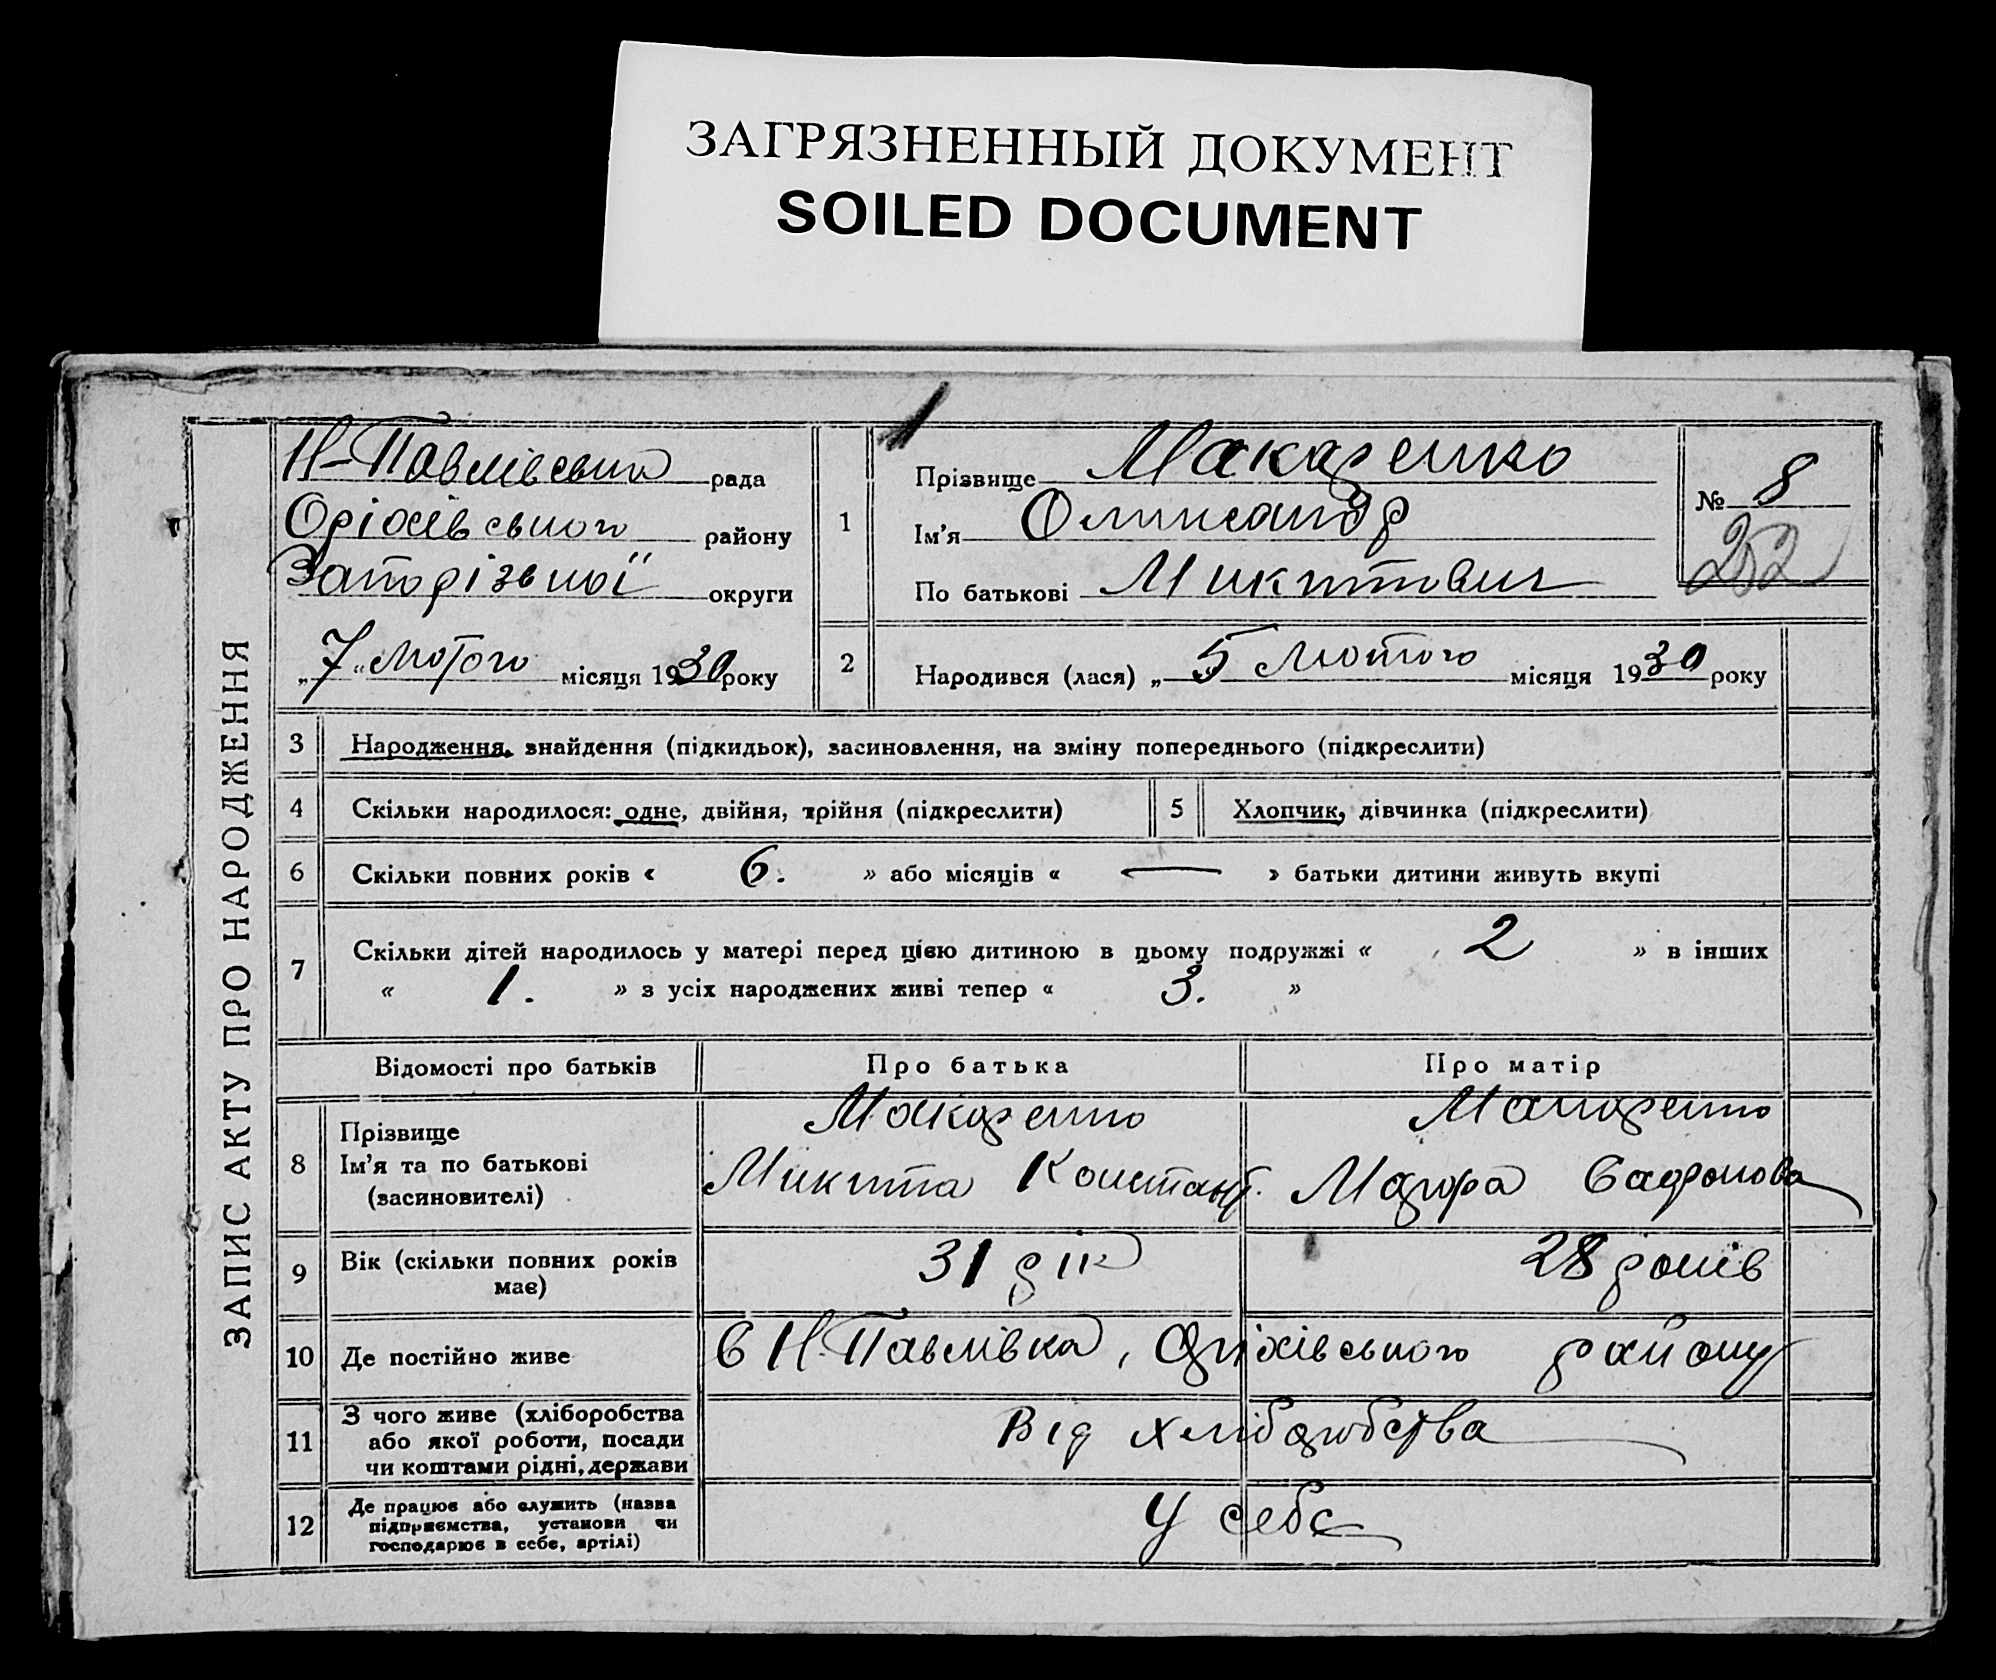 ЗАГРЯЗНЕННЫЙ ДОКУМЕНТ
SOILED DOCUMENT
ЗАПИС АКТУ ПРО НАРОДЖЕННЯ
Н-Павлівська рада
Оріхівського району
Запорізької округи
„7“ лютого місяця 1930 року
1
Прізвище Макаренко
Ім'я Олександр
По батькові Микитович
№ 8
252
2
Народився (лася) „ 5 лютого місяця 1930 року
3 Народження, знайдення (підкидьок), засиновлення, на зміну попереднього (підкреслити)
4 Скільки народилося: одне, двійня, трійня (підкреслити) 5 Хлопчик, дівчинка (підкреслити)
6 Скільки повних років « 6. » або місяців « — » батьки дитини живуть вкупі
7 Скільки дітей народилось у матері перед цією дитиною в цьому подружжі « 2 » в інших
« 1. » з усіх народжених живі тепер « 3. »
Відомості про батьків Про батька Про матір
8 Прізвище
Ім'я та по батькові
(засиновителі)
Макаренко
Микита Констант.
Макаренко
Марфа Сафронова
9 Вік (скільки повних років
має)
31 рік 28 років
10 Де постійно живе с Н-Павлівка, Оріхівського району
11 З чого живе (хліборобства
або якої роботи, посади
чи коштами рідні, держави
Від хліборобства
12 Де працює або служить (назва
підприємства, установи чи
господарює в себе, артілі)
У себе